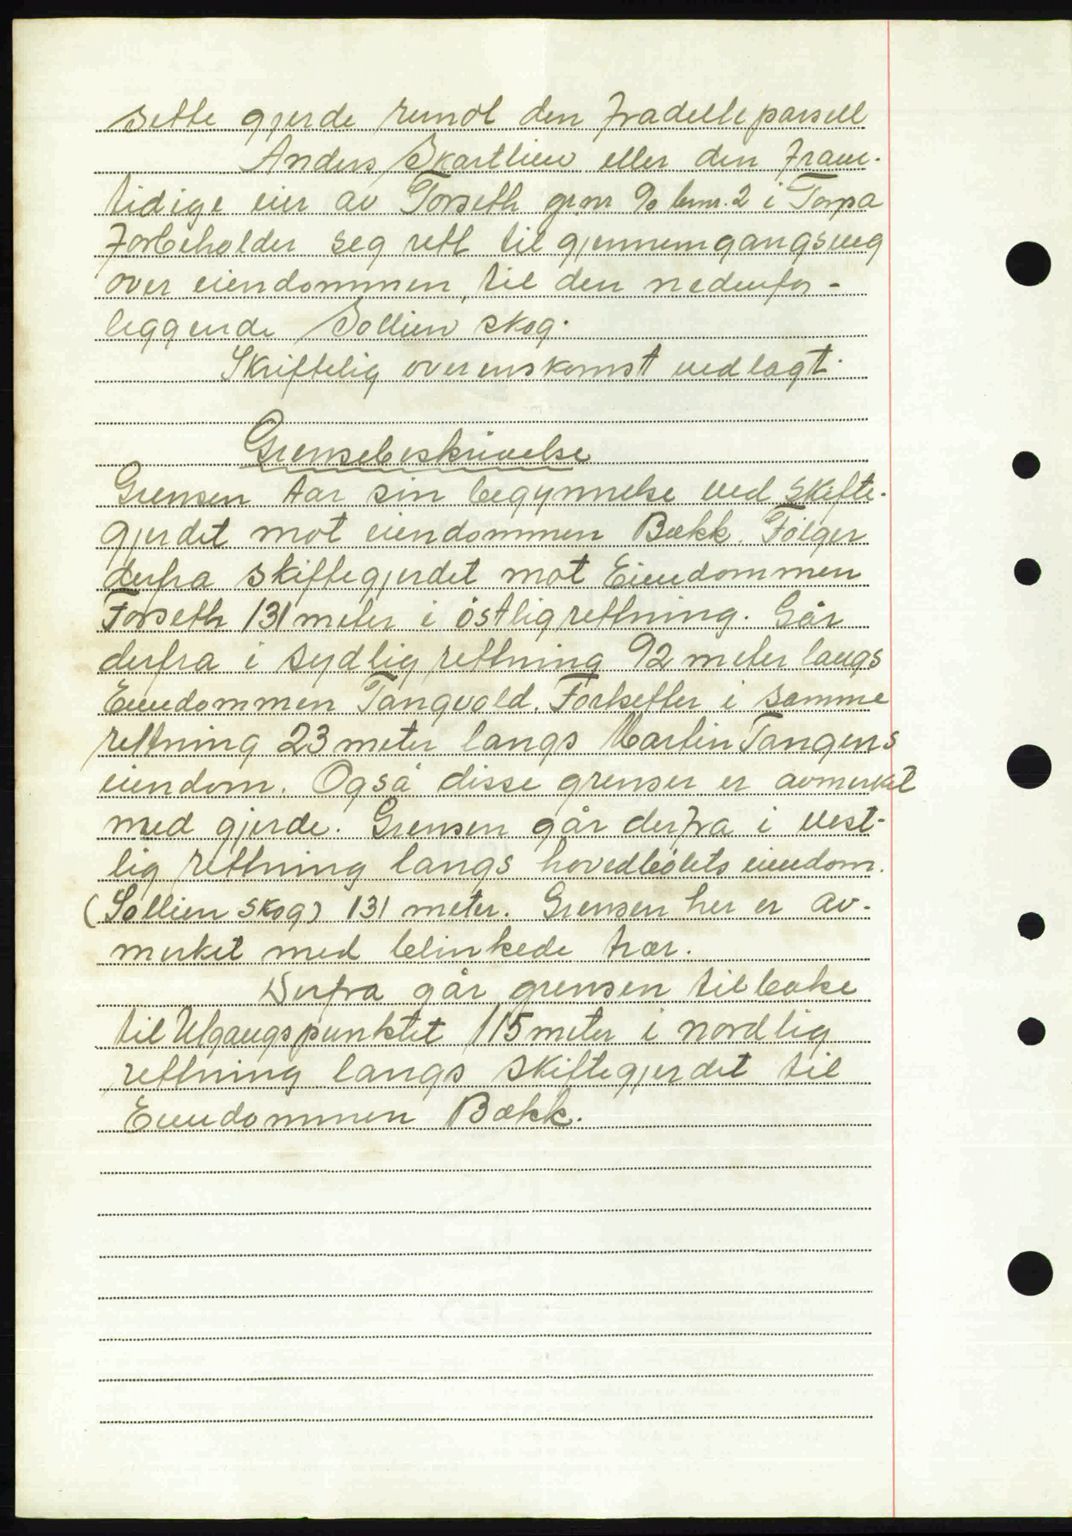 sette gjerde rundt den fradelte parsell
Anders Skartlien eller den fram-
tidige eier av Forseth gr.nr 90 br.nr. 2 i Torpa
forbeholder seg rett til gjennemgangsveg
over eiendommen, til den nedenfor-
liggende Sollien skog.
Skriftelig overenskomst vedlagt.
Grensebeskrivelse
Grensen tar sin begynnelse ved skifte-
gjerdet mot eiendommen Bækk. Følger
derfra skiftegjerdet mot Eiendommen
Forseth 131 meter i östlig rettning. Går
derfra i sydlig rettning 92 meter langs
Eiendommen Tangvold. Fortsetter i samme
rettning 23 meter langs Martin Tangens
eiendom. Også disse grenser er avmerket
med gjerde. Grensen går derfra i vest-
lig rettning langs hovedbölets eiendom.
(Sollien skog) 131 meter. Grensen her er av-
merket med blinkede trær.
Derfra går grensen tilbake
til Utgangspunktet 115 meter i nordlig
rettning langs skiftegjerdet til
Eiendommen Bækk.